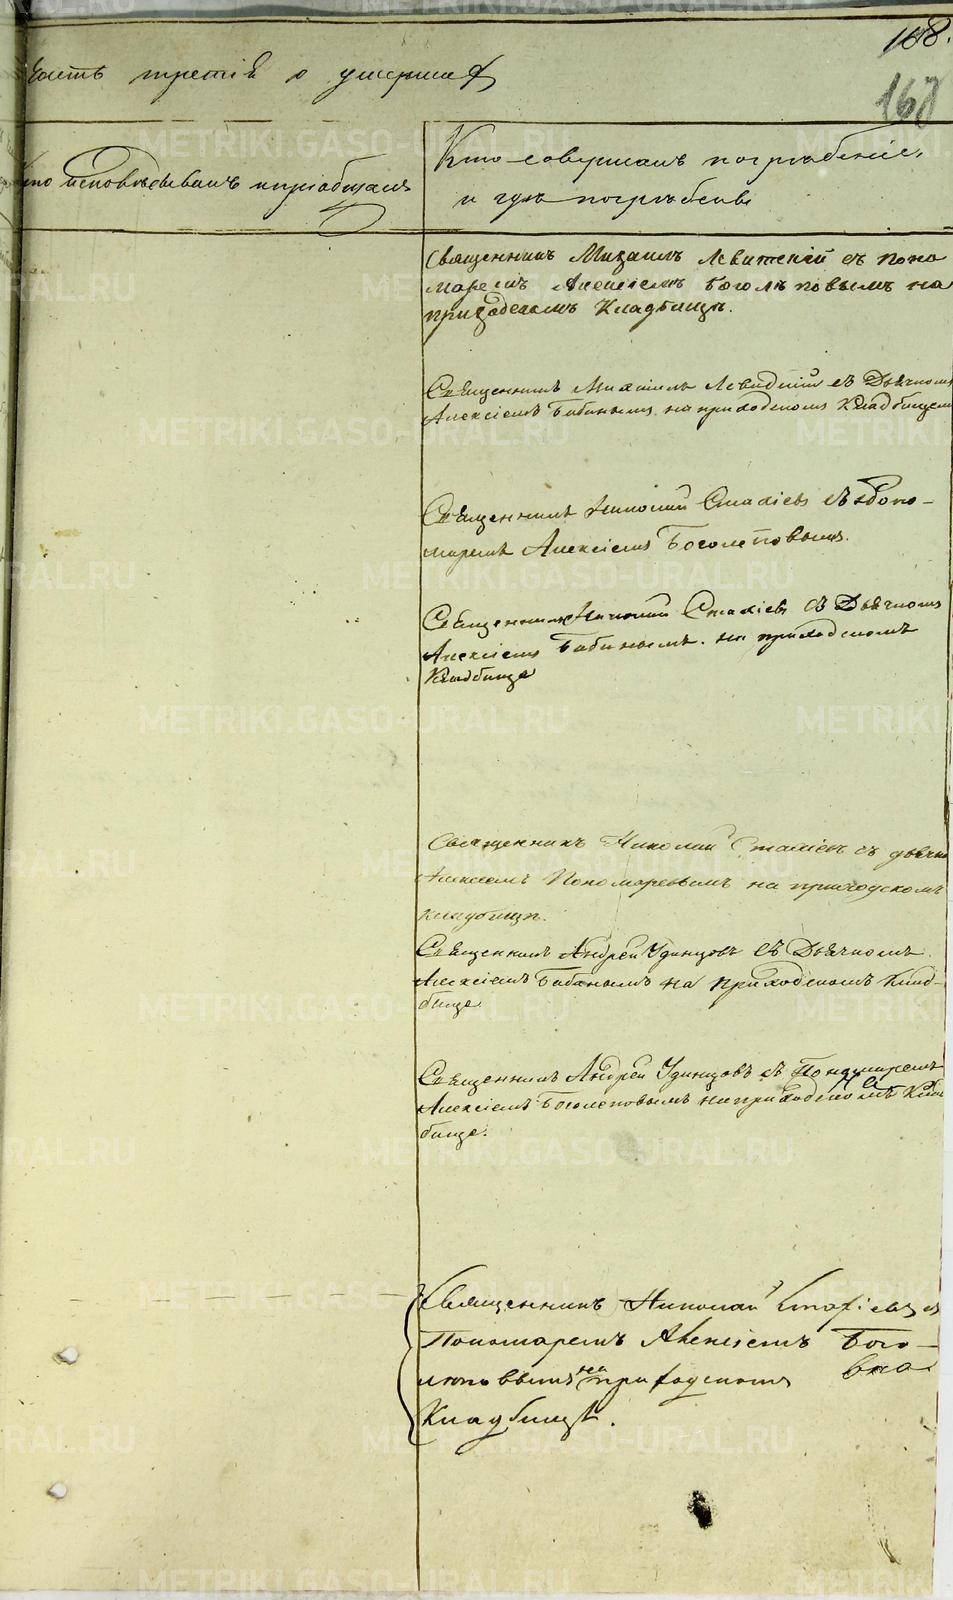 168.
168
Часть третія о умершихъ
Кто исповѣдывалъ и пріобщалъ
Кто совершалъ погребеніе,
и гдѣ погребены
Священникъ Михаилъ Левитскій съ поно
маремъ Алексіемъ Боголѣповымъ на
приходскомъ Кладбищѣ.
Священникъ Михаилъ Левицкій съ Дьячкомъ
Алексіемъ Бабинымъ на приходскомъ Кладбищѣ
Священникъ Николай Стахіевъ съ Поно-
маремъ Алексіемъ Боголеповымъ.
Священникъ Николай Стахіевъ съ Дьячкомъ
Алексіемъ Бабинымъ. на приходскомъ
Кладбище
Священникъ Николай Стахіевъ съ дьячко
Алексѣемъ Пономаревымъ на приходскомъ
кладбищѣ.
Священникъ Андрей Удинцовъ съ Дьячкомъ
Алексіемъ Бабинымъ на приходскомъ Клад-
бище
Священникъ Андрей Удинцовъ съ Пономаремъ
Алексіемъ Боголеповымъ на приходскомъ Клад
бище.
Священникъ Николай Стафіевъ съ
Пономаремъ Алексіемъ Бого-
леповымъ на приходскомъ
Кладбищѣ.
METRIKI.GASO-URAL.RU